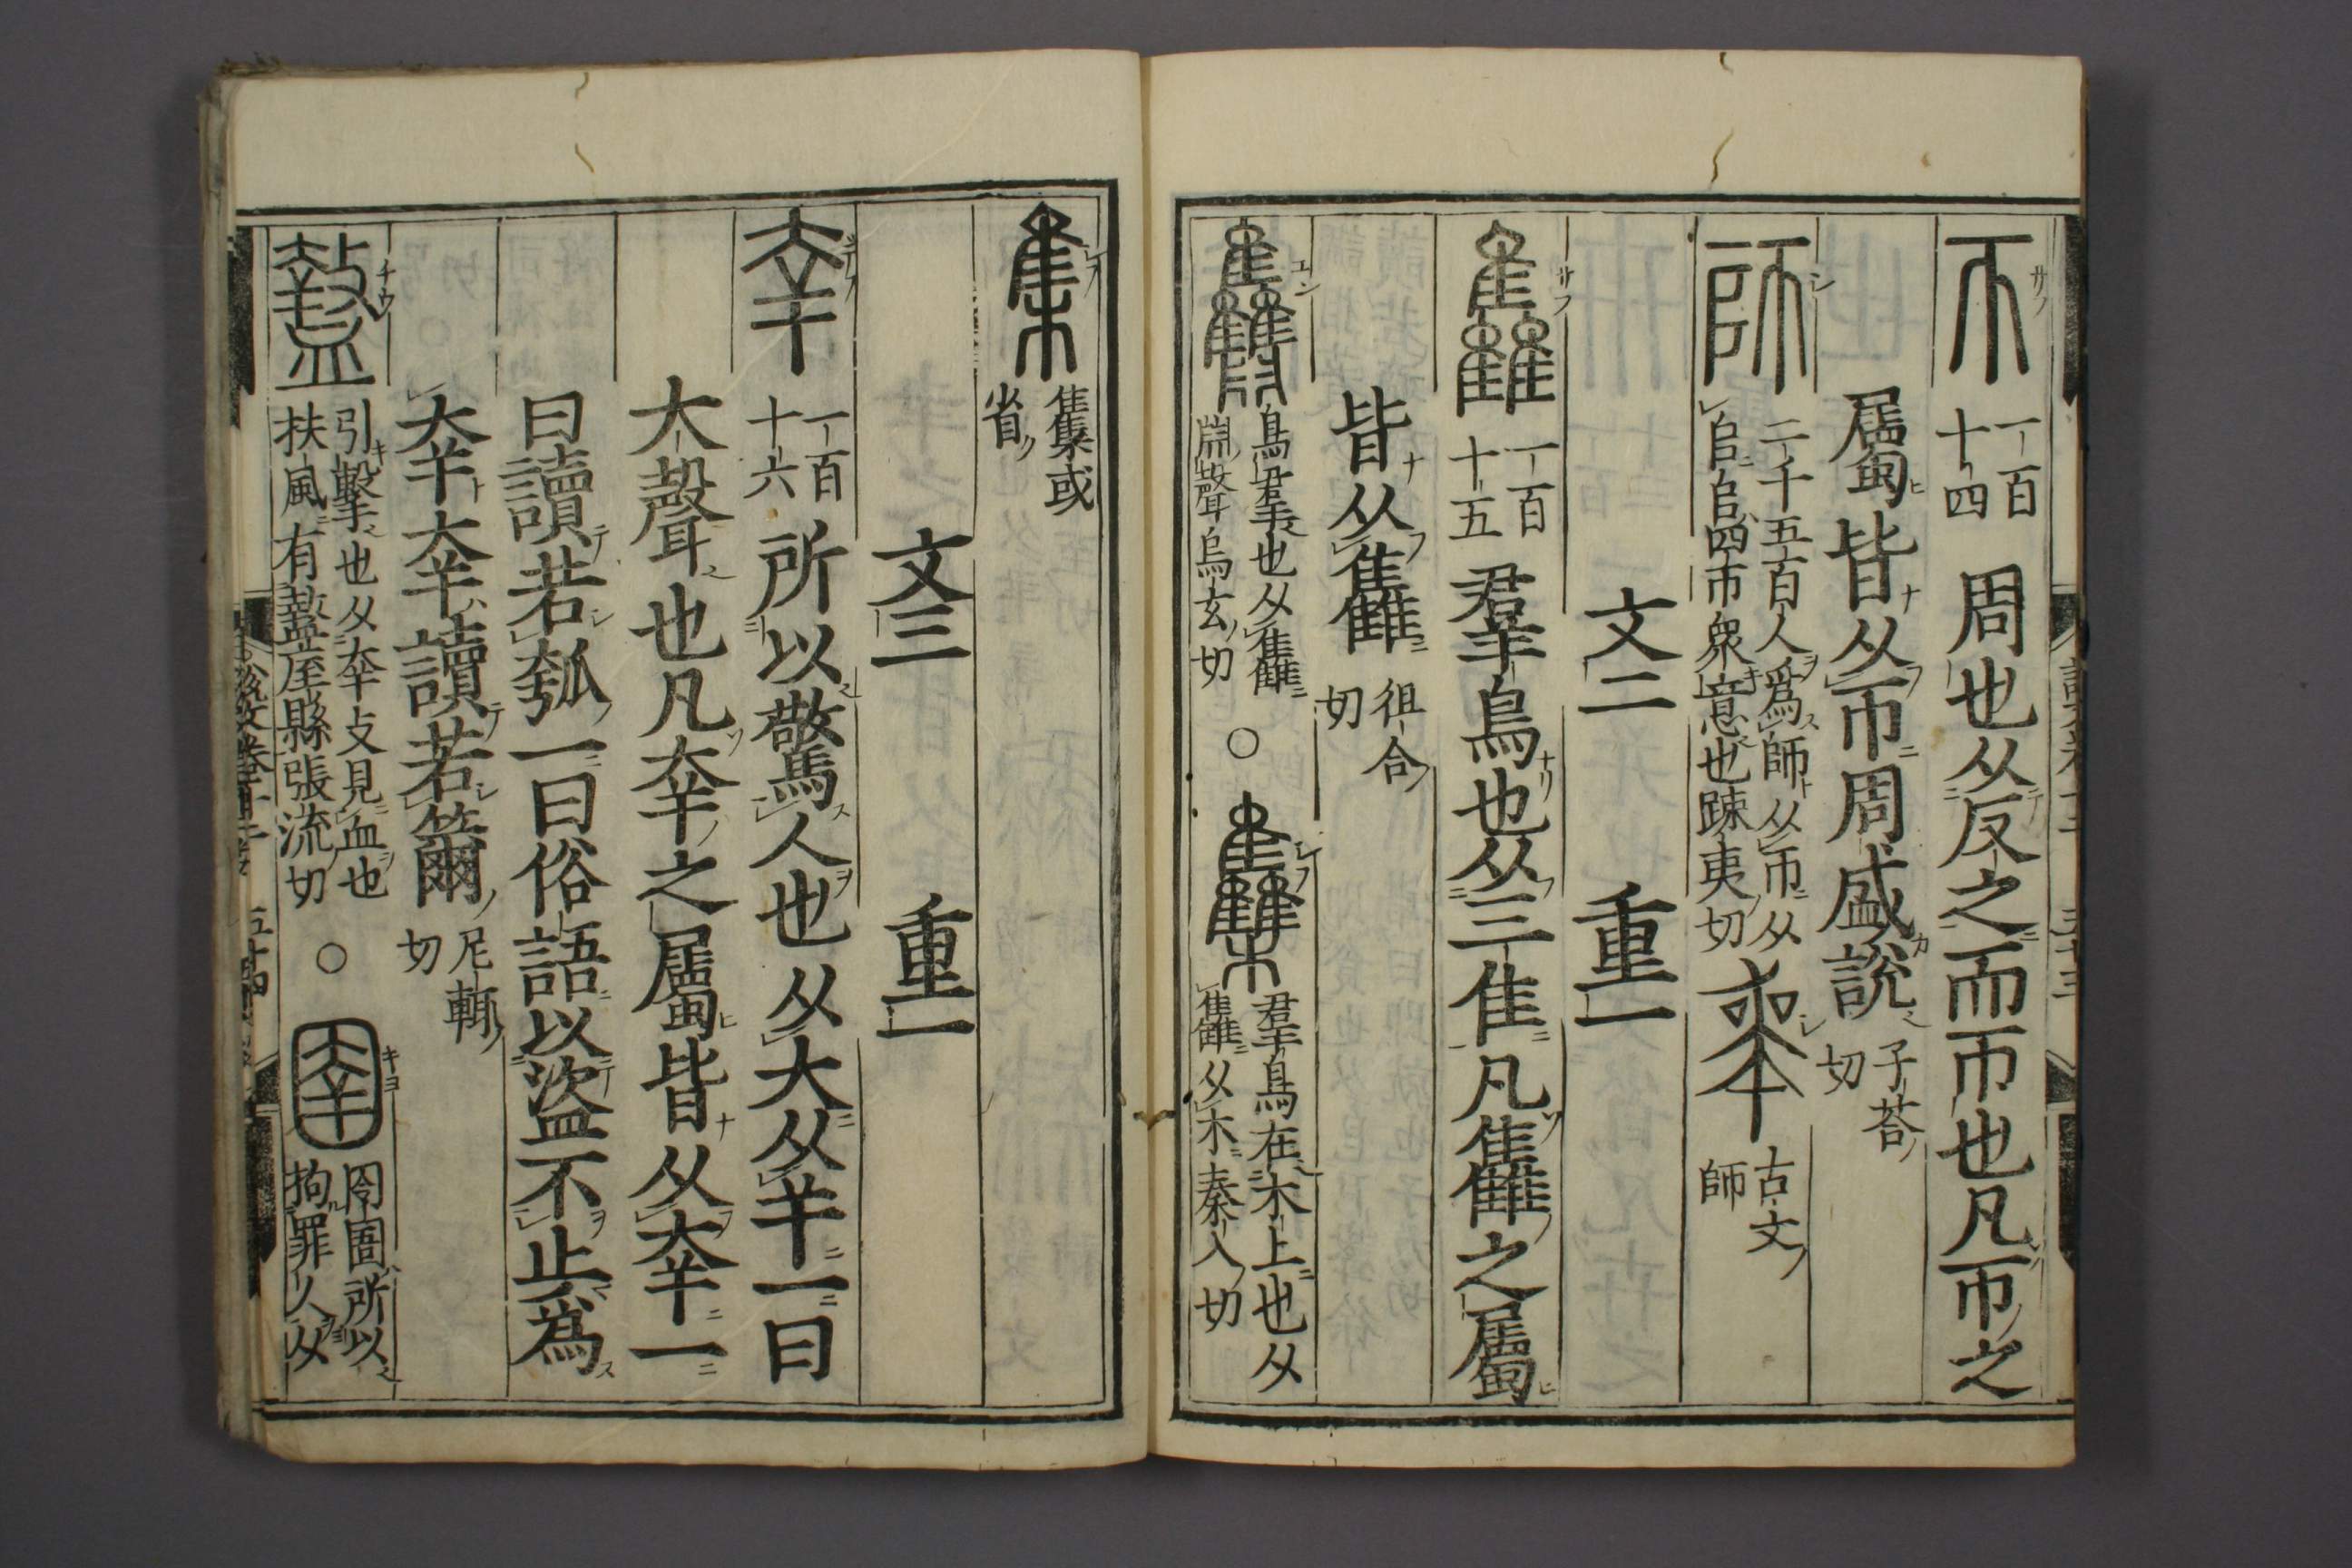 帀 一百十四 周也从反之而帀也凡帀之
屬皆从帀周盛說 子荅切
師 二千五百人爲師从帀从𠂤𠂤四帀衆意也踈夷切 𠦵 古文師
文二 重一
雥 一百十五 羣鳥也从三隹凡雥之屬
皆从雥 徂合切
鳥羣也从雥𣶒聲烏玄切 ○ 雧 羣鳥在木上也从雥从木秦入切
集 雧或省
文三 重一
㚔 一百十六 所以驚人也从大从𢆉一曰
大聲也凡㚔之屬皆从㚔一
曰讀若瓠一曰俗語以盜不止爲
㚔㚔讀若籋 尼輒切
盩 引擊也从㚔攴見血也扶風有盩厔縣張流切 ○ 圉 囹圄所以拘罪人从